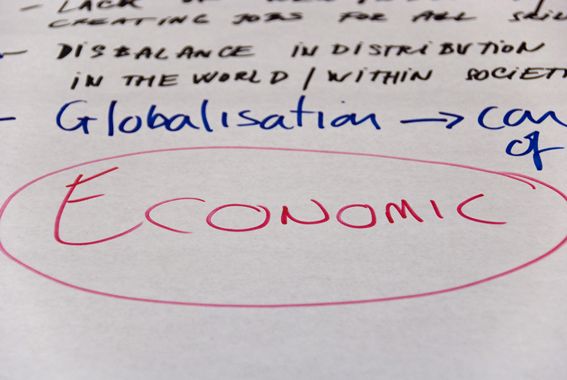 - LACK OF
CREATING JOBS FOR ALL
- DISBALANCE IN DISTRIBUTION
IN THE WORLD / WITHIN SOCIET
- Globalisation → can
of
ECONOMIC